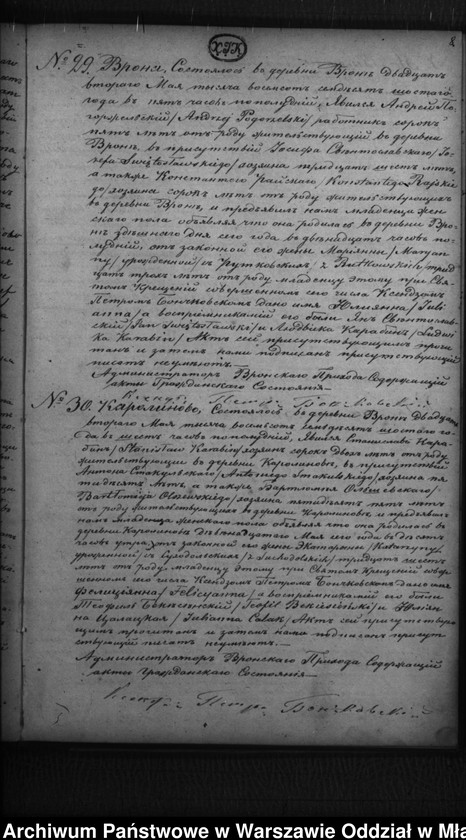 ХЛК
8
№ 29. Врона, Состоялось въ деревни Вронъ двадцать
втораго Мая тысяча восемсотъ семдесятъ шестаго
года въ пять часовъ пополудни, Явился Андрей По-
/Andrzej / работникъ сорокъ
пять лѣтъ отъ роду жительствующiй въ деревни
Вронъ, въ присутствiи Iосифа Свентославскаго / Jo-
zefa Swiętosławskiego / хозяина тридцать шесть лѣтъ,
а также Константого Райскаго / Konstantego Rajskie-
go / хозяина сорокъ лѣтъ отъ роду жительствующихъ
въ деревни Вронъ, и предъявилъ намъ младенца жен-
скаго пола объявляя что она родилась въ деревни Вро-
нъ дня сего года въ двѣнадцать часовъ по-
полудни, отъ законной его жены Марiянны / Maryan-
ny / урожденной изъ Рутковскихъ / z Rutkowskich / трид-
цать трехъ лѣтъ отъ роду, младенцу этому при Свя-
томъ Крещенiи совершенномъ сего числа Ксендзомъ
Петромъ Бончковскимъ дано имя Юлiянна / Juli
anna / а воспрiемниками его были Янъ Свентослав-
скiй / Jan Swiętosławski / и Людвика Карабинъ / Ludwi
ka Karabin / Актъ сей присутствующимъ прочи-
танъ и затемъ нами подписанъ присутствующiй
писать неумѣютъ.
Администраторъ Вронскаго Прихода Содержащiй
акты Гражданскаго Состоянiя
Ксендзъ Петръ Бончковскiй
№ 30. Каролиново, Состоялось въ деревни Вронъ Двадцать
втораго Мая тысяча восемсотъ семдесятъ шестаго го-
да въ шесть часовъ пополудни, Явился Станиславъ Кара-
бинъ / Stanisław Karabin / хозяинъ сорокъ двохъ лѣтъ отъ роду
жительствующiи въ деревни Каролиновъ, въ присутствiи
Антона / Antoniego / хозяина пя-
тидесяти лѣтъ, а также Бартломея Ольшевскаго /
Bartłomieja Olszewskiego / хозяина пятидесять пять лѣтъ
отъ роду жительствующихъ въ деревни Каролиновъ и предъявилъ
намъ Младенца женскаго пола объявляя что она родилась въ
деревни Каролиновъ Мая сего года въ десять
часовъ утра отъ законной его жены Екатерины / Katarzyny /
урожденной изъ Суходольскихъ / z Suchodolskich / тридцать шесть
лѣтъ отъ роду, младенцу этому при Святомъ Крещенiи совер-
шенномъ сего числа Ксендзомъ Петромъ Бончковскимъ дано имя
Фелицiянна / Felicyanna / а воспрiемниками его были
Теофиль / Teofil / и Юлiян-
на Цолацкая / Julianna / Актъ сей присутствую-
щимъ прочитанъ и затемъ нами подписанъ присут-
ствующiй писать неумѣютъ.
Администраторъ Вронскаго Прихода Содержащiй
акты Гражданскаго Состоянiя
Ксендзъ Петръ Бончковскiй
Archiwum Państwowe w Warszawie Oddział w Mła